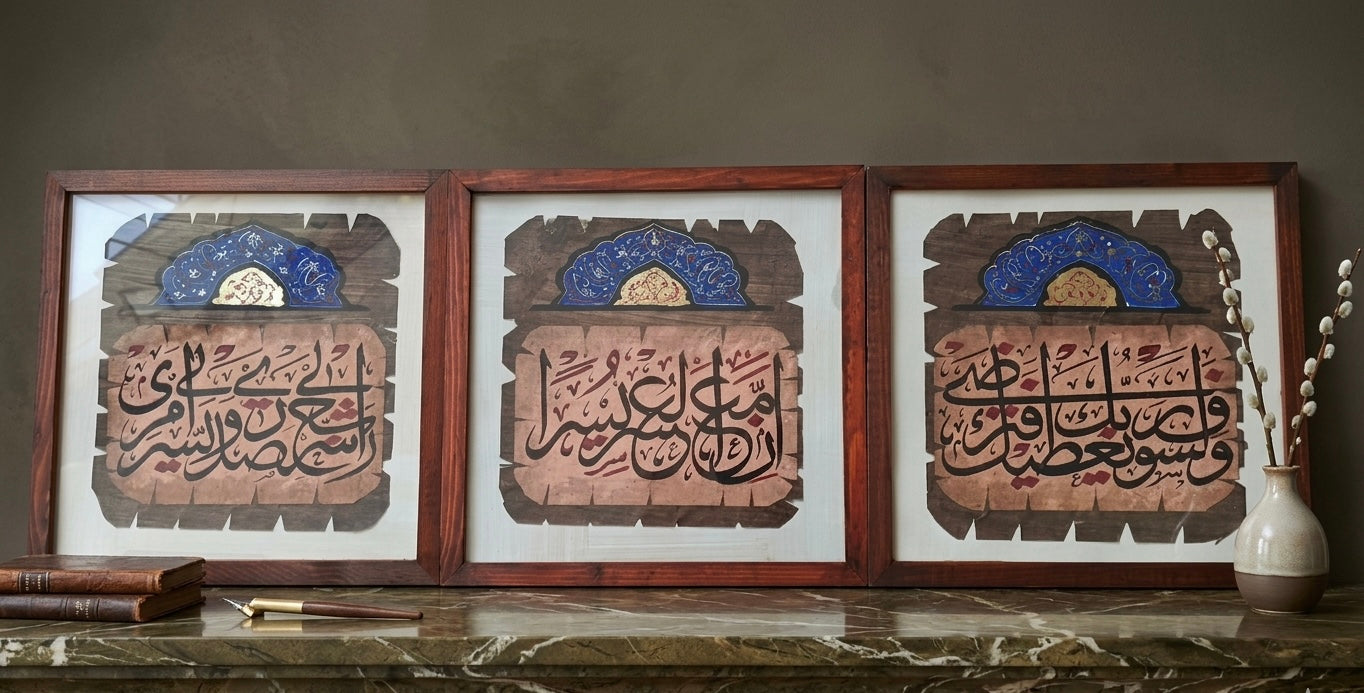 ولسوف يعطيك ربك فترضى
إن مع العسر يسرا
رب اشرح لي صدري ويسر لي أمري